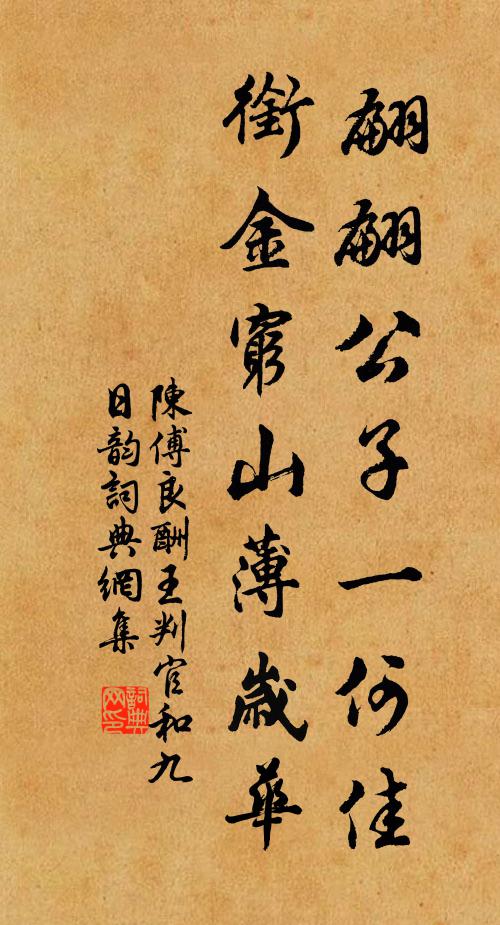 翩翩公子一何佳
銜金窮山薄歲華
陳傅良酬王判官和九
日韵詞典網集
詞典网印